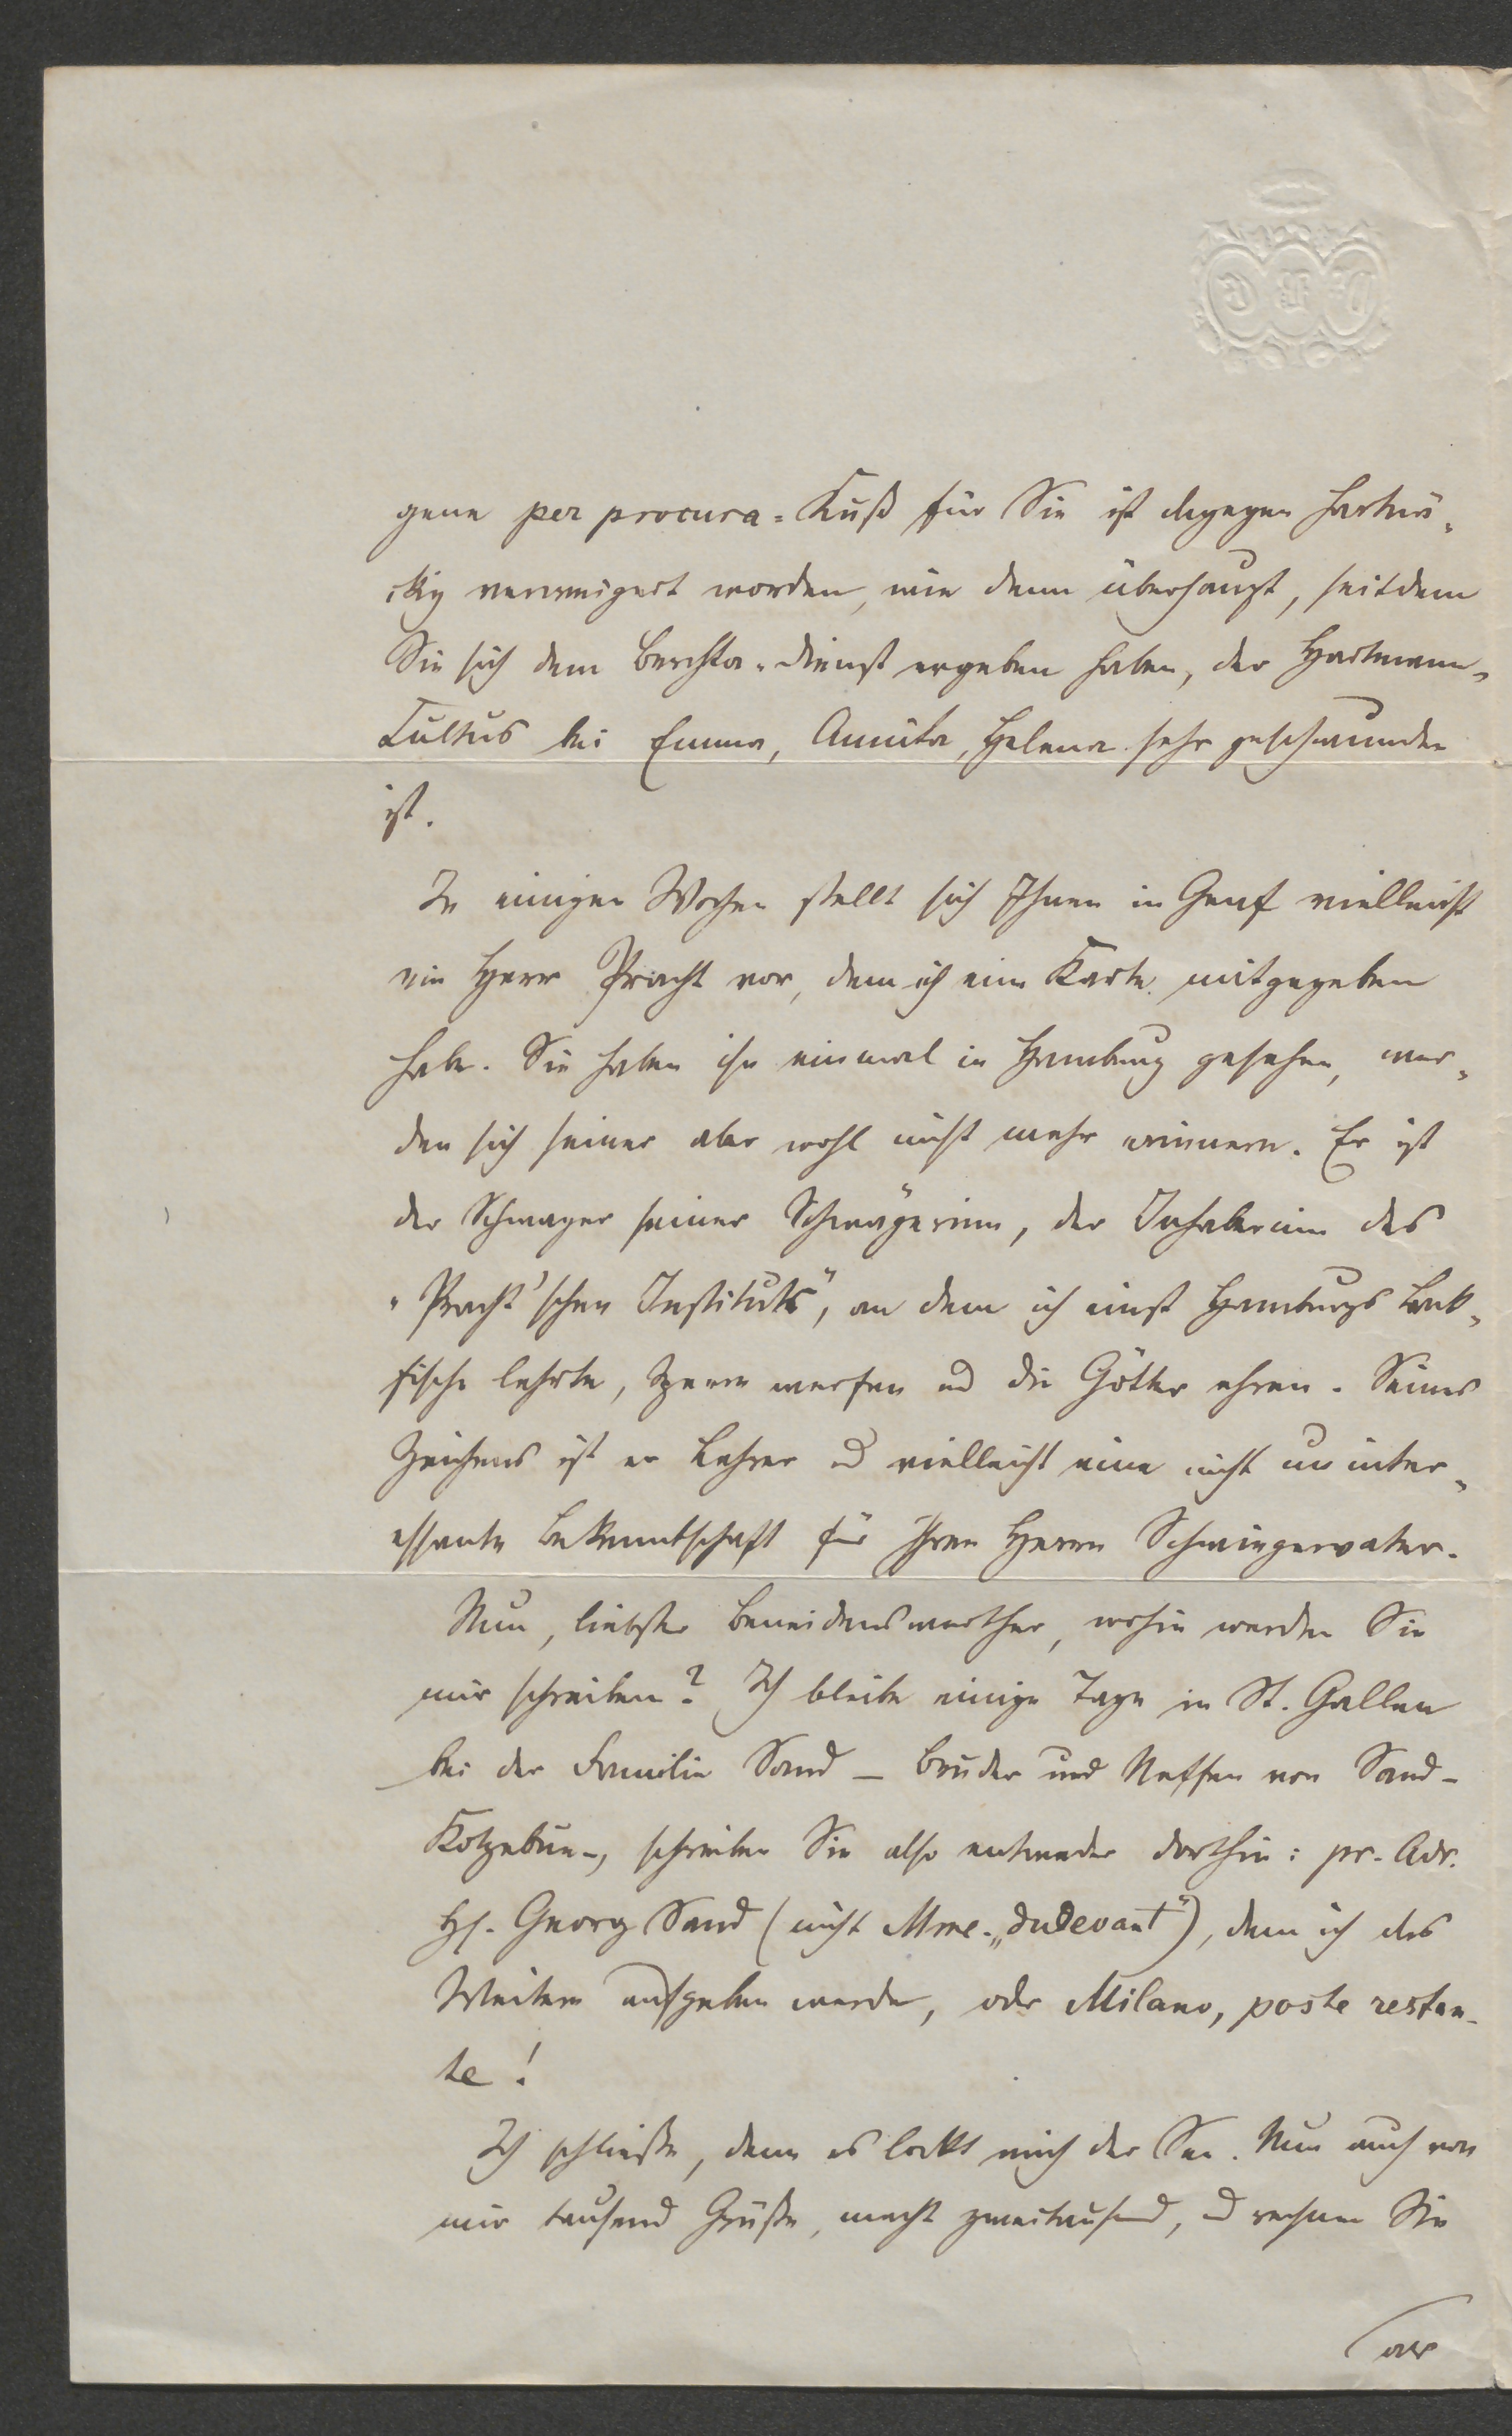 gene per procura=Kuß für Sie ist dagegen hartnä-
ckig verweigert worden, wie denn überhaupt, seitdem
Sie sich dem Bertha-Dienst ergeben haben, der Hartmann-
Cultus bei Emma, Annita, Helena sehr geschwunden
ist.
In einigen Wochen stellt sich Ihnen in Genf vielleicht
ein Herr Pracht vor, dem ich eine Karte mitgegeben
habe. Sie haben ihn einmal in Hamburg gesehen, wer-
den sich seiner aber wohl nicht mehr erinnern. Er ist
der Schwager seiner Schwägerinn, der Inhaberinn des
"Pracht'schen Instituts", an dem ich einst Hamburgs Back-
fische lehrte, Speere werfen und die Götter ehren. Seines
Zeichens ist er Lehrer und vielleicht eine nicht uninter-
essante Bekanntschaft für Ihren Herrn Schwiegervater.
Nun, liebster Beneidenswerther, wohin werden Sie
mir schreiben? Ich bleibe einige Tage in St. Gallen
bei der Familie Sand – Bruder und Neffen von Sand-
Kotzebue –, schreiben Sie also entweder dorthin: pr. Adr.
Hr. Georg Sand (nicht Mme. „Dudevant"), dem ich das
Weitere aufgeben werde, oder Milano, poste restan-
te!
Ich schließe, denn es lockt mich der See. Nun auch von
mir tausend Grüße, macht zweitausend, und rechnen Sie